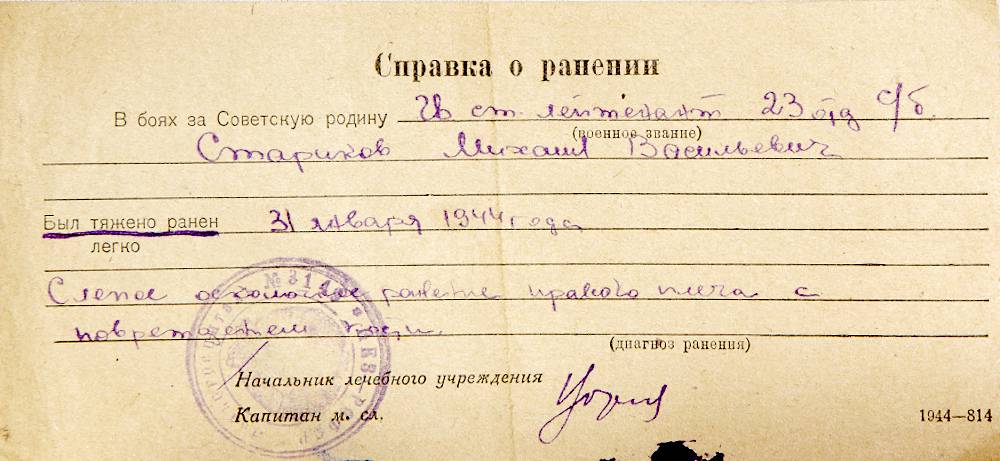 Справка о ранении
В боях за Советскую родину Гв ст. лейтенант 23 отд с/б.
(военное звание)
Стариков Михаил Васильевич
Был тяжено ранен 31 января 1944 года
легко
Слепое осколочное ранение правого плеча с
повреждением кости.
(диагноз ранения)
Начальник лечебного учреждения
Капитан м. сл.
1944—814